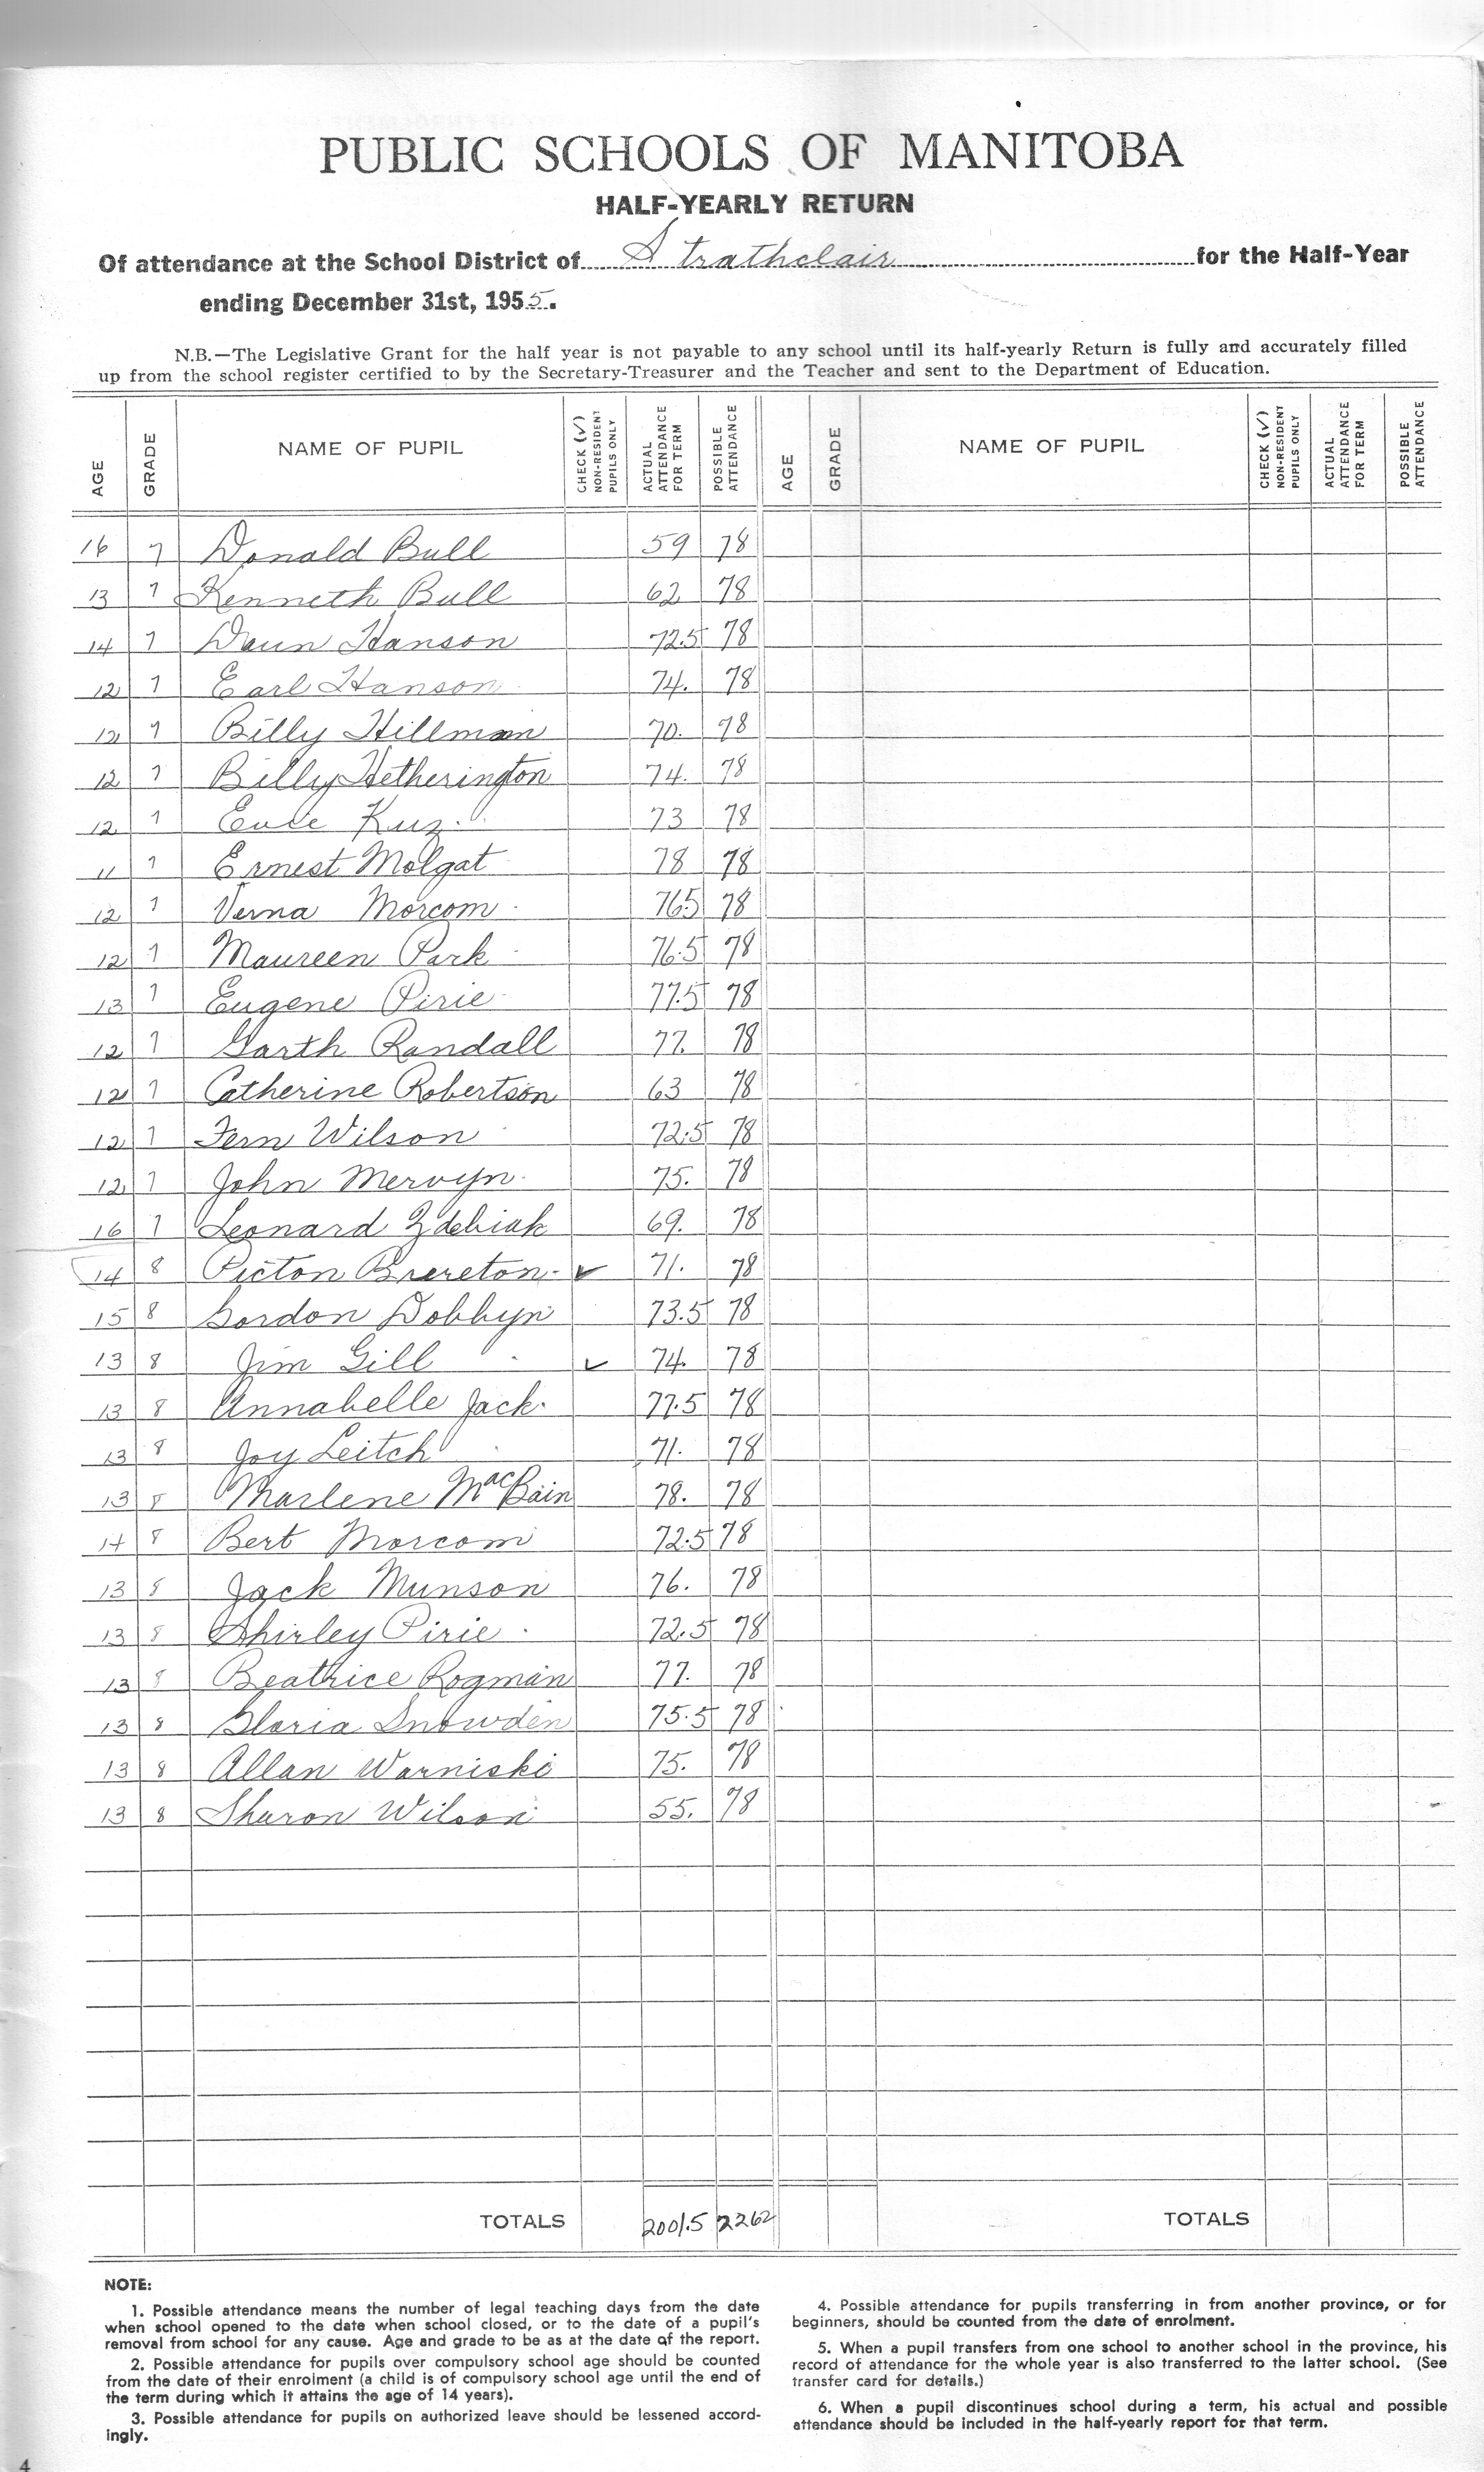 PUBLIC SCHOOLS OF MANITOBA
HALF-YEARLY RETURN
Of attendance at the School District of Strathclair for the Half-Year
ending December 31st, 1955.
N.B.—The Legislative Grant for the half year is not payable to any school until its half-yearly Return is fully and accurately filled
up from the school register certified to by the Secretary-Treasurer and the Teacher and sent to the Department of Education.
AGE GRADE NAME OF PUPIL CHECK (✓) NON-RESIDENT PUPILS ONLY ACTUAL ATTENDANCE FOR TERM POSSIBLE ATTENDANCE AGE GRADE NAME OF PUPIL CHECK (✓) NON-RESIDENT PUPILS ONLY ACTUAL ATTENDANCE FOR TERM POSSIBLE ATTENDANCE
16 7 Donald Bull 59 78
13 7 Kenneth Bull 62 78
14 7 Daun Hanson 72.5 78
12 7 Earl Hanson 74. 78
12 7 Billy Hillman 70. 78
12 7 Billy Hetherington 74. 78
12 7 Kuz 73 78
11 7 Ernest Molgat 78 78
12 7 Verna Morcom 765 78
12 7 Maureen Park 76.5 78
13 7 Eugene Pirie 77.5 78
12 7 Garth Randall 77. 78
12 7 Catherine Robertson 63 78
12 7 Fern Wilson 72.5 78
12 7 John Mervyn 75. 78
16 7 Leonard Zdebiak 69. 78
14 8 Picton Brereton ✓ 71. 78
15 8 Gordon Dobbyn 73.5 78
13 8 Jim Gill ✓ 74. 78
13 8 Annabelle Jack 77.5 78
13 8 Joy Leitch 71. 78
13 8 Marlene MacBain 78. 78
14 8 Bert Morcom 72.5 78
13 8 Jack Munson 76. 78
13 8 Shirley Pirie 72.5 78
13 8 Beatrice Rogman 77. 78
13 8 Gloria Snowden 75.5 78
13 8 Allan Warniski 75. 78
13 8 Sharon Wilson 55. 78
TOTALS 2001.5 2262 TOTALS
NOTE:
1. Possible attendance means the number of legal teaching days from the date
when school opened to the date when school closed, or to the date of a pupil's
removal from school for any cause. Age and grade to be as at the date of the report.
2. Possible attendance for pupils over compulsory school age should be counted
from the date of their enrolment (a child is of compulsory school age until the end of
the term during which it attains the age of 14 years).
3. Possible attendance for pupils on authorized leave should be lessened accord-
ingly.
4. Possible attendance for pupils transferring in from another province, or for
beginners, should be counted from the date of enrolment.
5. When a pupil transfers from one school to another school in the province, his
record of attendance for the whole year is also transferred to the latter school. (See
transfer card for details.)
6. When a pupil discontinues school during a term, his actual and possible
attendance should be included in the half-yearly report for that term.
4